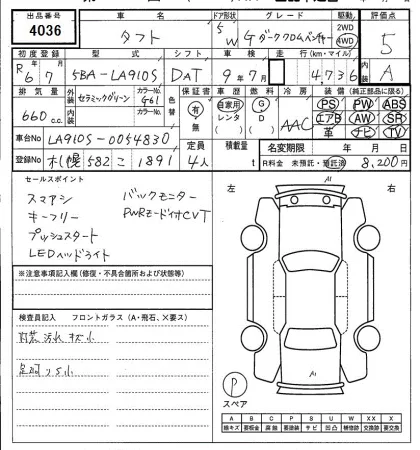 出品番号 車名 ドア形状 グレード 駆動 評価点
4036 タフト 5 W Gダーククロムベンチャー 2WD 4WD 5
初度登録 型式 シフト 車検 走行(km・マイル) 内装
R 6/7 5BA-LA910S DAT 9年7月 4,736 A
排気量 外装 カラーNo. 色替 保証書 車歴 燃料 冷房 装備(純正部品に限る)
660 c.c. セラミックグリーン G61 有 無 自家用 レンタ G D AAC PS PW ABS
内装 カラーNo. エアB AW SR
革 ナビ TV
車台No LA910S-0054830 定員 積載量 名変期限 年 月 日
登録No 札幌 582 こ 1891 4人 t R料金 未預託・預託済 8,200円
セールスポイント
スマアシ バックモニター
キーフリー PWRモード付CVT
プッシュスタート
LEDヘッドライト
左 右
A1
※注意事項記入欄(修復・不具合箇所および状態等)
検査員記入 フロントガラス(A・飛石、×要ス)
内装 汚れ キズ 小
A1
P
スペア
A B C P S U W X XX